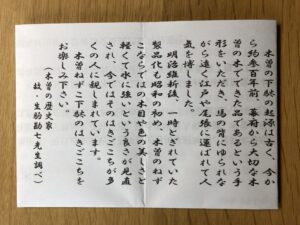 木曽の下駄の起源は古く、今か
ら約参百年前、幕府から大切な木
曽の木でできた品であるという手
形をいただき、馬の背にゆられな
がら遠く江戸や尾張に運ばれて人
気を博しました。
明治維新後、一時とぎれていた
製品化も昭和の初め、木曽のねず
こならではの木目や色の美しさと
軽くて水に強いという良さが見直
され、今ではそのはきごこちが多
くの人に親しまれています。
木曽ねずこ下駄のはきごこちを
お楽しみ下さい。
(木曽の歴史家
故、生駒勘七先生調べ)